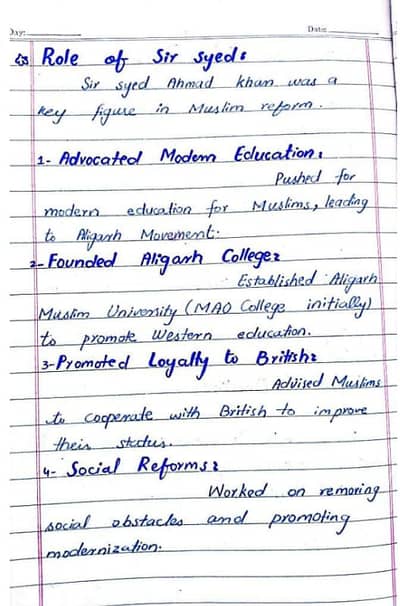 Day:
Date:
Role of Sir Syed:
Sir Syed Ahmad Khan was a
key figure in Muslim reform.
1- Advocated Modern Education:
Pushed for
modern education for Muslims, leading
to Aligarh Movement.
2- Founded Aligarh College:
Established Aligarh
Muslim University (MAO College initially)
to promote Western education.
3- Promoted Loyally to British:
Advised Muslims
to cooperate with British to improve
their status.
4- Social Reforms:
Worked on removing
social obstacles and promoting
modernization.